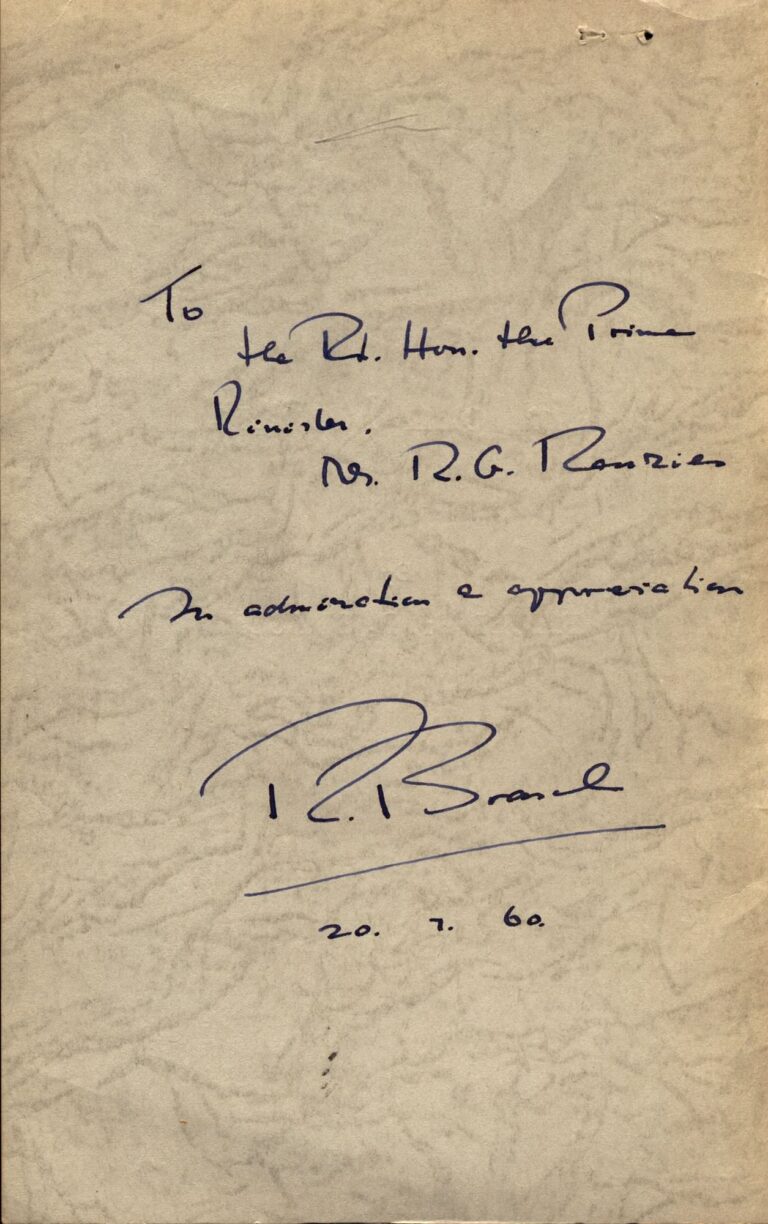 To
the Rt. Hon. the Prime
Minister.
Mr. R. G. Menzies
In admiration & appreciation
R. Brasch
20. 7. 60.